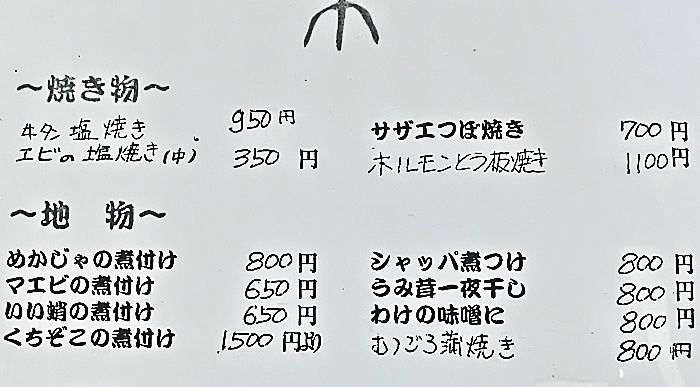 ～焼き物～
牛タン塩焼き 950円
エビの塩焼き(中) 350円
サザエつぼ焼き 700円
ホルモンとう板焼き 1100円
～地 物～
めかじゃの煮付け 800円
マエビの煮付け 650円
いい蛸の煮付け 650円
くちぞこの煮付け 1,500円より
シャッパ煮つけ 800円
うみ茸一夜干し 800円
わけの味噌に 800円
むつごろ蒲焼き 800円